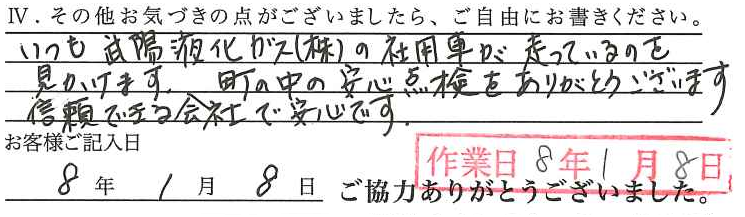 Ⅳ．その他お気づきの点がございましたら、ご自由にお書きください。
いつも武陽液化ガス(株)の社用車が走っているのを
見かけます. 町の中の安心点検をありがとうございます
信頼できる会社で安心です.
お客様ご記入日
作業日 8年1月8日
8年1月8日 ご協力ありがとうございました。